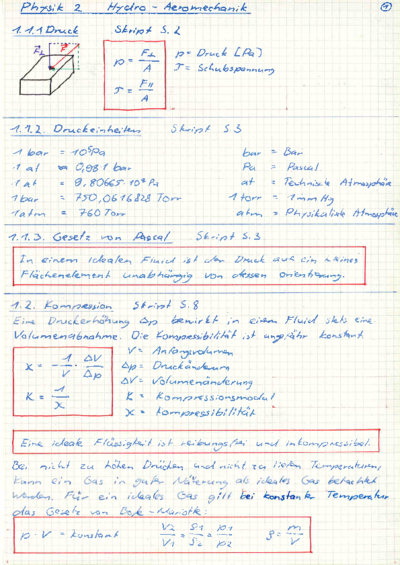 Physik 2 Hydro-Aeromechanik
1.1.1 Druck Skript S.2
F⊥ F
p = F⊥ / A p = Druck [Pa]
τ = F∥ / A τ = Schubspannung
1.1.2. Druckeinheiten Skript S.3
1 bar = 10⁵Pa bar = Bar
1 at = 0,981 bar Pa = Pascal
1 at = 9,80665·10⁴Pa at = Technische Atmosphäre
1 bar = 750,0616828 Torr 1 torr = 1 mmHg
1 atm = 760 Torr atm = Physikalische Atmosphäre
1.1.3. Gesetz von Pascal Skript S.3
In einem idealen Fluid ist der Druck auf ein kleines
Flächenelement unabhängig von dessen orientierung.
1.2. Kompression Skript S.8
Eine Druckerhöhung Δp bewirkt in einem Fluid stets eine
Volumenabnahme. Die Kompressibilität ist ungefähr konstant.
V = Anfangsvolumen
x = - 1/V · ΔV/Δp Δp = Druckänderung
ΔV = Volumenänderung
K = 1/x K = Kompressionsmodul
x = Kompressibilität
Eine ideale Flüssigkeit ist reibungsfrei und inkompressibel.
Bei nicht zu hohen Drücken und nicht zu tiefen Temperaturen,
kann ein Gas in guter Näherung als ideales Gas betrachtet
werden. Für ein ideales Gas gilt bei konstanter Temperatur
das Gesetz von Boyle-Mariotte:
p · V = konstant V₂/V₁ = ρ₁/ρ₂ = p₁/p₂ ρ = m/V